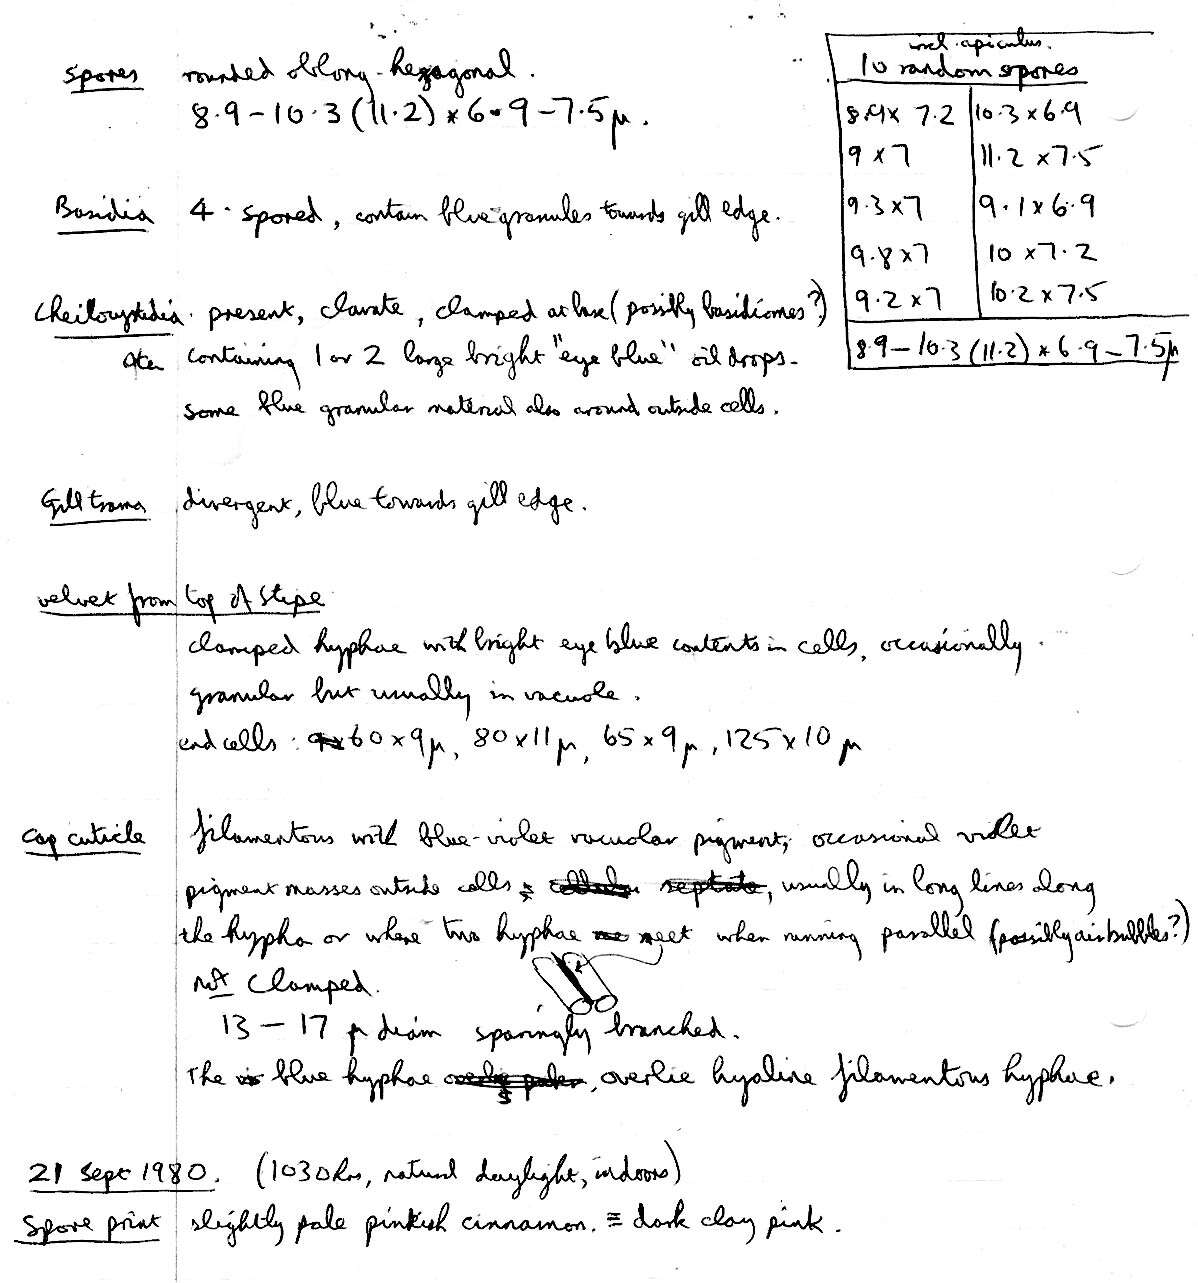 Spores rounded oblong-hexagonal.
8.9 – 10.3 (11.2) × 6.9 – 7.5 μ.
incl. apiculus.
10 random spores
8.9 × 7.2 10.3 × 6.9
9 × 7 11.2 × 7.5
9.3 × 7 9.1 × 6.9
9.8 × 7 10 × 7.2
9.2 × 7 10.2 × 7.5
8.9 – 10.3 (11.2) × 6.9 – 7.5 μ
Basidia 4-spored, contain blue granules towards gill edge.
Cheilocystidia present, clavate, clamped at base (possibly basidiomes?)
containing 1 or 2 large bright "eye blue" oil drops.
some blue granular material also around outside cells.
Gill trama divergent, blue towards gill edge.
velvet from top of stipe
clamped hyphae with bright eye blue contents in cells, occasionally
granular but usually in vacuole.
end cells: 60 × 9 μ, 80 × 11 μ, 65 × 9 μ, 125 × 10 μ
Cap cuticle filamentous with blue-violet vacuolar pigment, occasional violet
pigment masses outside cells, usually in long lines along
the hypha or where two hyphae meet when running parallel (possibly air bubbles?)
not clamped.
13 – 17 μ diam sparingly branched.
The blue hyphae, overlie hyaline filamentous hyphae.
21 Sept 1980. (1030 hrs, natural daylight, indoors)
Spore print slightly pale pinkish cinnamon. ≡ dark clay pink.